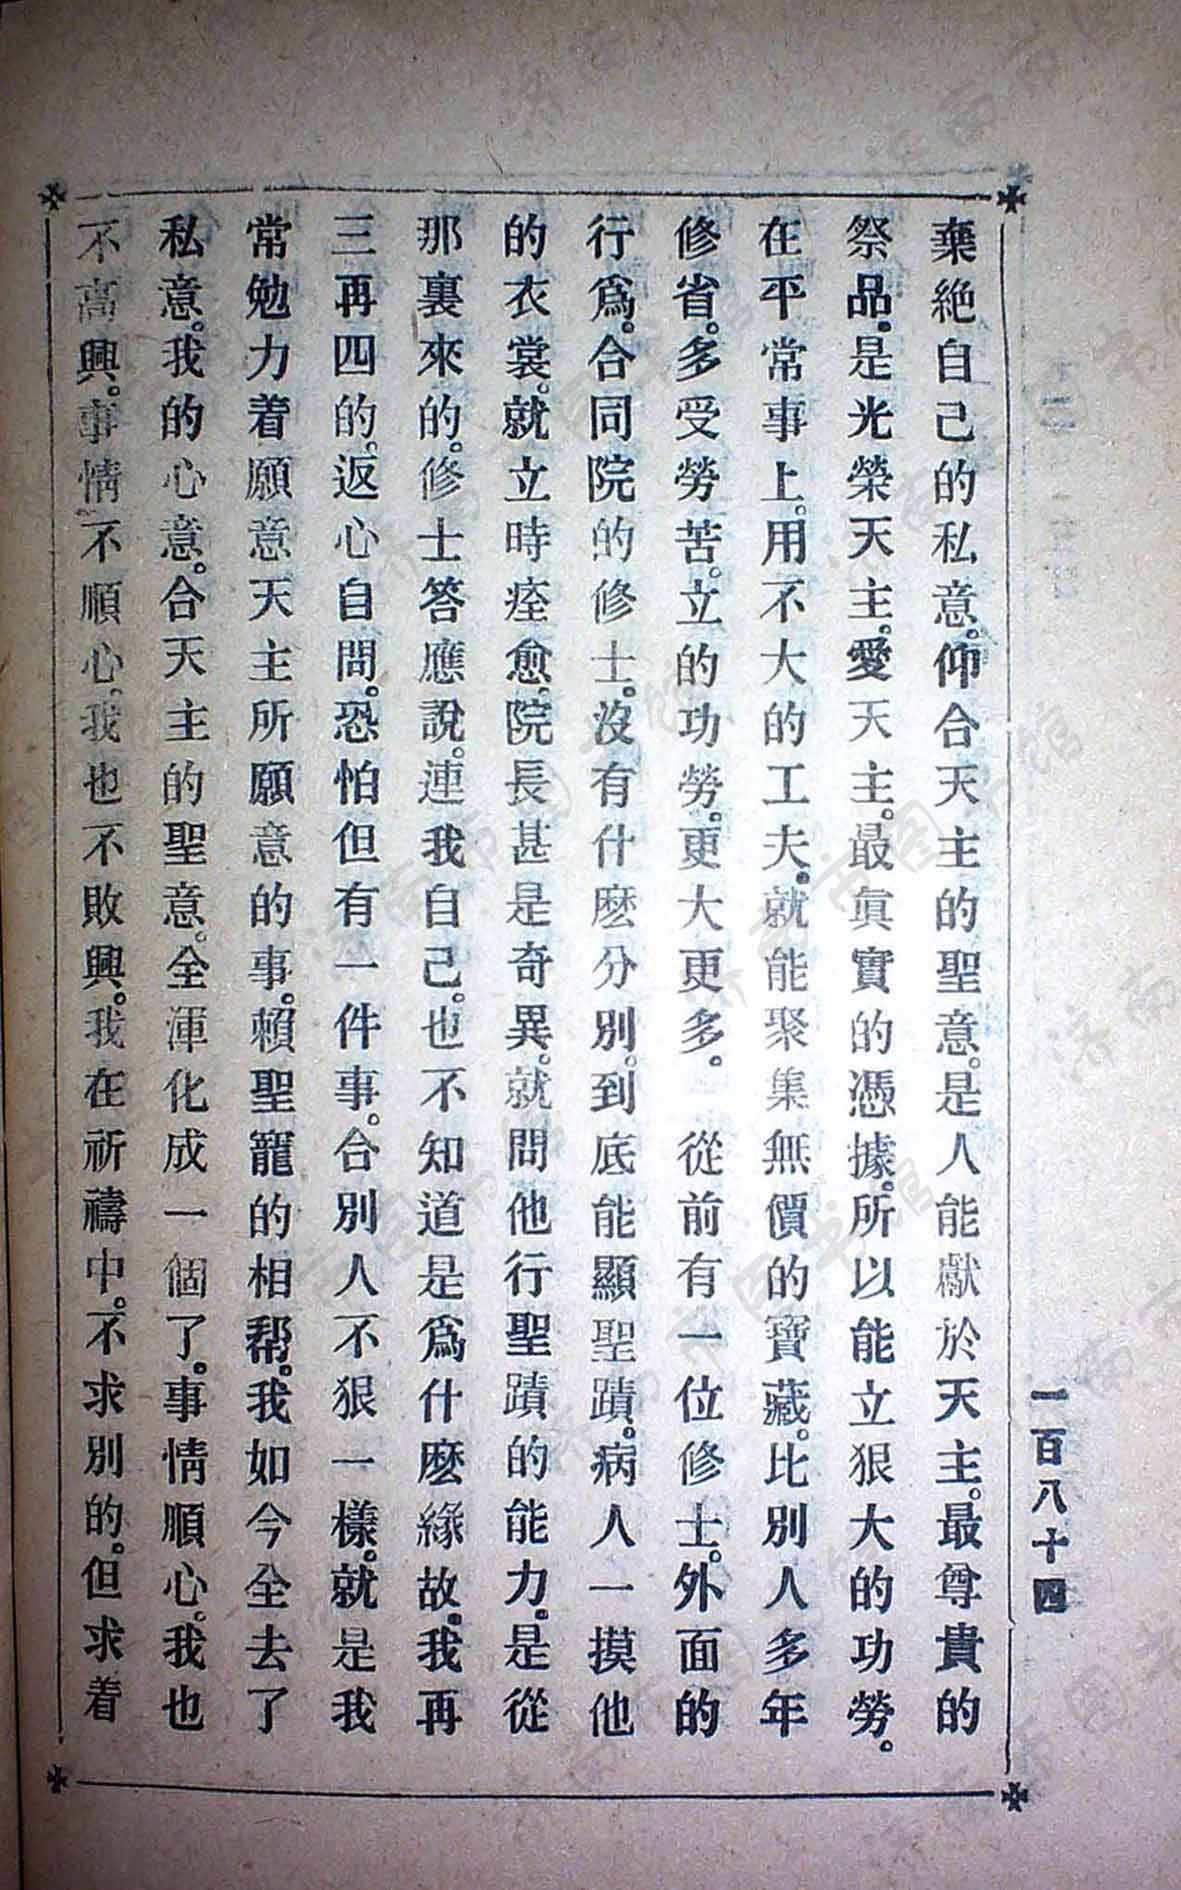 棄絕自己的私意。仰合天主的聖意。是人能獻於天主。最尊貴的
祭品。是光榮天主。愛天主。最眞實的憑據。所以能立狠大的功勞。
在平常事上。用不大的工夫。就能聚集無價的寶藏。比別人多年
修省。多受勞苦。立的功勞。更大更多。 從前有一位修士。外面的
行爲。合同院的修士。沒有什麽分別。到底能顯聖蹟。病人一摸他
的衣裳。就立時痊愈。院長甚是奇異。就問他行聖蹟的能力。是從
那裏來的。修士答應說。連我自己。也不知道是爲什麽緣故。我再
三再四的。返心自問。恐怕但有一件事。合別人不狠一樣。就是我
常勉力着願意天主所願意的事。賴聖寵的相帮。我如今全去了
私意。我的心意。合天主的聖意。全渾化成一個了。事情順心。我也
不高興。事情不順心。我也不敗興。我在祈禱中。不求別的。但求着
一百八十四
济南市图书馆